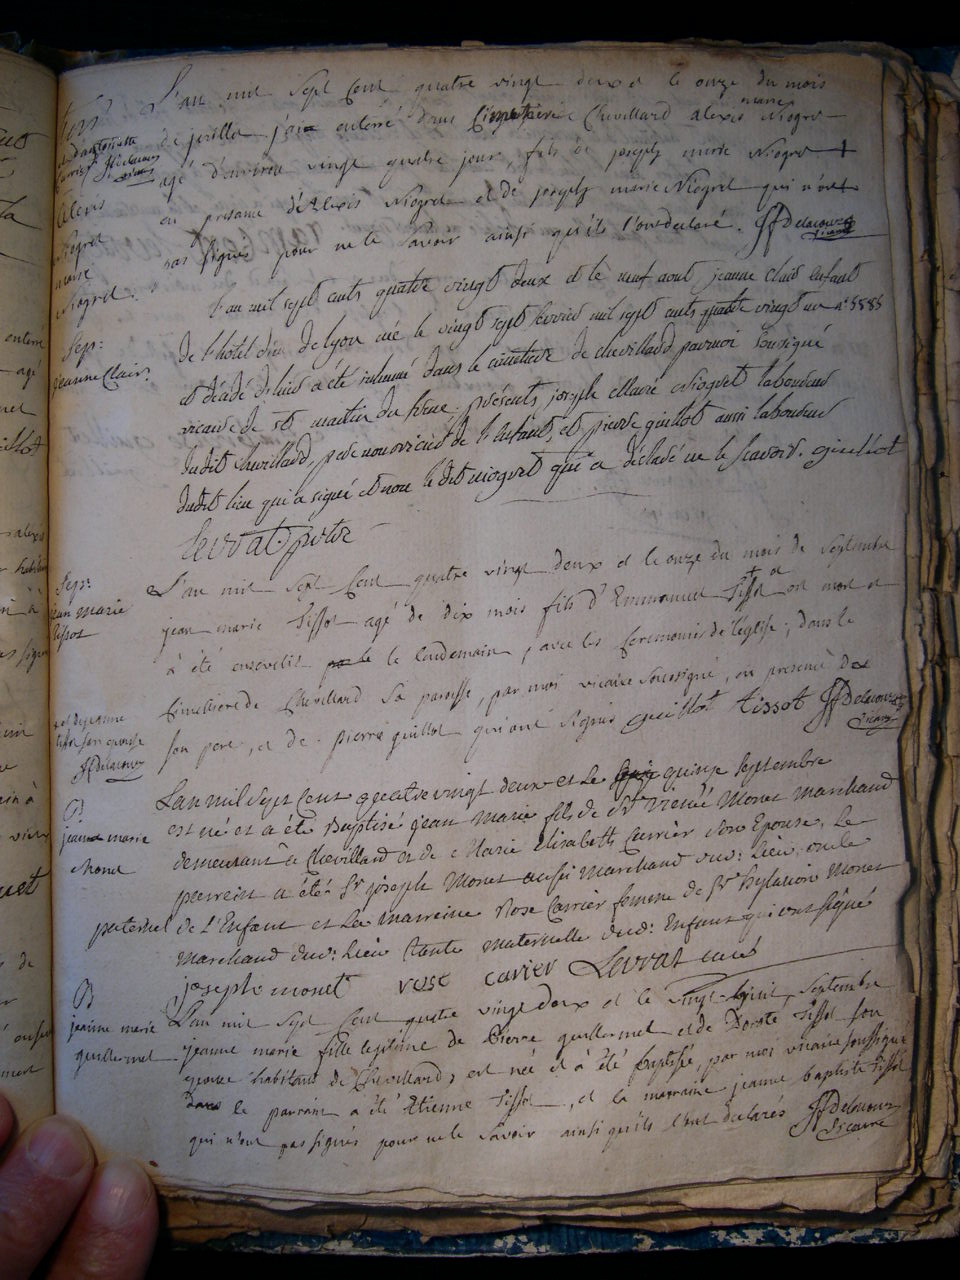 L'an mil sept cent quatre vingt deux et le onze du mois
de juillet j'ai enterré dans Cimetière Chevillard alexis marie Niogret
agé d'environ vingt quatre jour, fils de joseph marie Niogret
en presence d'Alexis Niogret et de joseph marie Niogret qui n'ont
pas signés pour ne le savoir ainsi qu'ils l'ont declaré. Delacoux
vicaire
Alexis
Niogret
marie
Niogret.
Sep:
jeanne Clair.
L'an mil sept cents quatre vingt deux et le neuf aout jeanne clair enfant
de l'hotel dieu de lyon né le vingt sept fevrier mil sept cents quatre vingt un n° 5885
et décédé d'hier a été inhumé dans le cimetière de chevillard par moi soussigné
vicaire de st martin du frêne, présents joseph marie Niogret laboureur
dudit chevillard, père nourricier de l'enfant, et pierre guillot aussi laboureur
dudit lieu qui a signé et non le dit niogret qui a déclaré ne le scavoir. guillot
Levrat, ptre
Sep:
jean marie
tissot
L'an mil sept cent quatre vingt deux et le onze du mois de Septembre
jean marie tissot agé de dix mois fils d'Emmanuel tissot est mort et
à été enseveli le lendemain, avec les Ceremonies de l'eglise, dans le
Cimetiere de Chevillard sa paroisse, par moi vicaire soussigné, en presence de
son pere, et de pierre guillot qui ont signés guillot tissot Delacoux
vicaire
et de jeanne
tissot son epouse
Delacoux
B
jean marie
Monet
L'an mil sept cent quatre vingt deux et le quinze septembre
est né et a été Baptisé jean marie fils de Sr Monet marchand
demeurant à Chevillard et de Marie Elisabeth Carrier son Epouse. Le
parrein a été Sr joseph Monet aussi marchand dud: lieu oncle
paternel de l'Enfant et la marreine Rose Carrier femme de Sr hylarion Monet
marchand dud: lieu tante maternelle dud: Enfant qui ont signé
joseph monet rose carier Levrat curé
B
jeanne marie
guillermet
L'an mil sept cent quatre vingt deux et le vingt huit, septembre
jeanne marie fille legitime de Pierre guillermet et de tissot son
epouse habitans de Chevillard, est née et à été baptisée, par moi vicaire soussigné
le parrain a été Etienne tissot, et la marraine jeanne baptiste tissot
qui n'ont pas signés pour ne le savoir ainsi qu'ils l'ont declarés Delacoux
vicaire